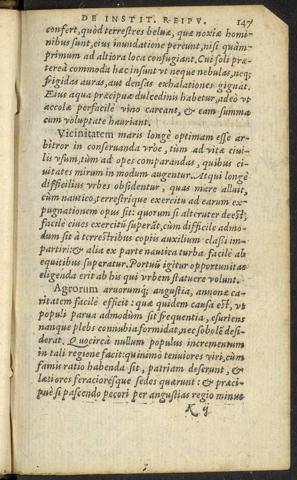 DE INSTIT. REIPV. 147
confert, quòd terrestres beluæ, quæ noxiæ homi-
nibus sunt, eius inundatione pereunt, nisi quàm-
primum ad altiora loca confugiant. Cui soli præ-
tereà commoda hæc insunt vt neque nebulas, necq;
frigidas auras, aut densas exhalationes gignat.
Eius aqua præcipuæ dulcedinis habetur, adeò vt
accolæ perfacilè vino careant, & eam summa
cum voluptate hauriant.
Vicinitatem maris longè optimam esse ar-
bitror in conseruanda vrbe, tùm ad vitæ ciui-
lis vsum, tùm ad opes comparandas, quibus ci-
uitates mirum in modum augentur. Atqui longè
difficilius vrbes obsidentur, quas mare alluit,
cùm nautico, terrestriq́ue exercitu ad earum ex-
pugnationem opus sit: quorum si alteruter deest,
facilè ciues exercitũ superãt, cùm difficile admo-
dum sit à terrestribus copiis auxilium classi im-
partiri: & alia ex parte nautica turba facilè ab
equitibus superatur. Portuũ igitur opportunitas
eligenda erit ab his qui vrbem statuere volunt.
Agrorum aruorumq́; angustia, annonæ ca-
ritatem facilè efficit: quæ quidem causa est, vt
populi parua admodùm sit frequentia, esuriens
nanque plebs connubia formidat, nec sobolẽ desi-
derat. Quocircà nullum populus incrementum
in tali regione facit: quinimò tenuiores viri, cùm
famis ratio habenda sit, patriam deserunt, &
lætiores feracioresque sedes quærunt: & præci-
puè si pascendo pecori per angustias regio minus
K ij